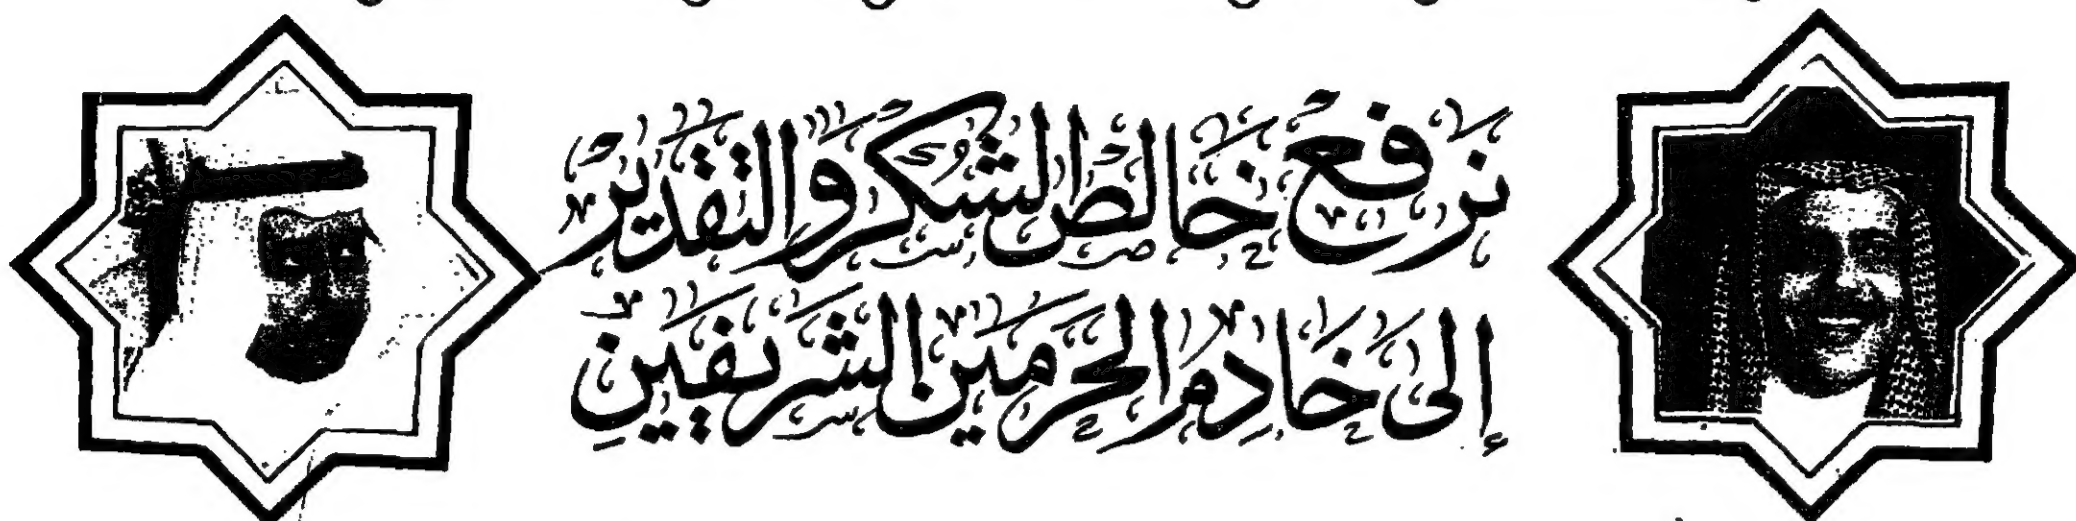 نرفع خالص الشكر والتقدير
إلى خادم الحرمين الشريفين